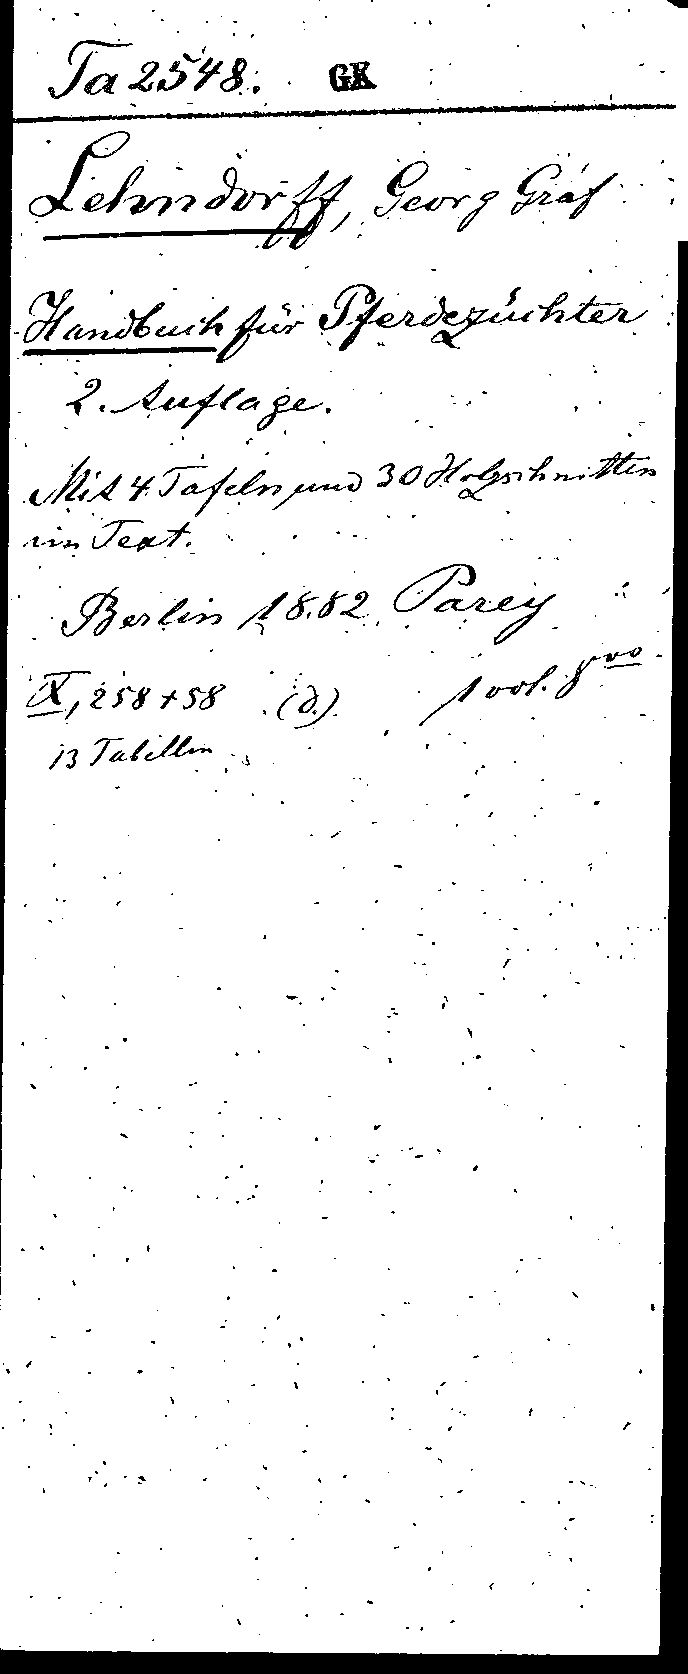 Ta 2548. GK
Lehndorff, Georg Graf
Handbuch für Pferdezüchter
2. Auflage.
Mit 4 Tafeln und 30 Holzschnitten
im Text.
Berlin 1882 Parey
X, 258+58 (d.) 1 vol. 8vo
13 Tabellen